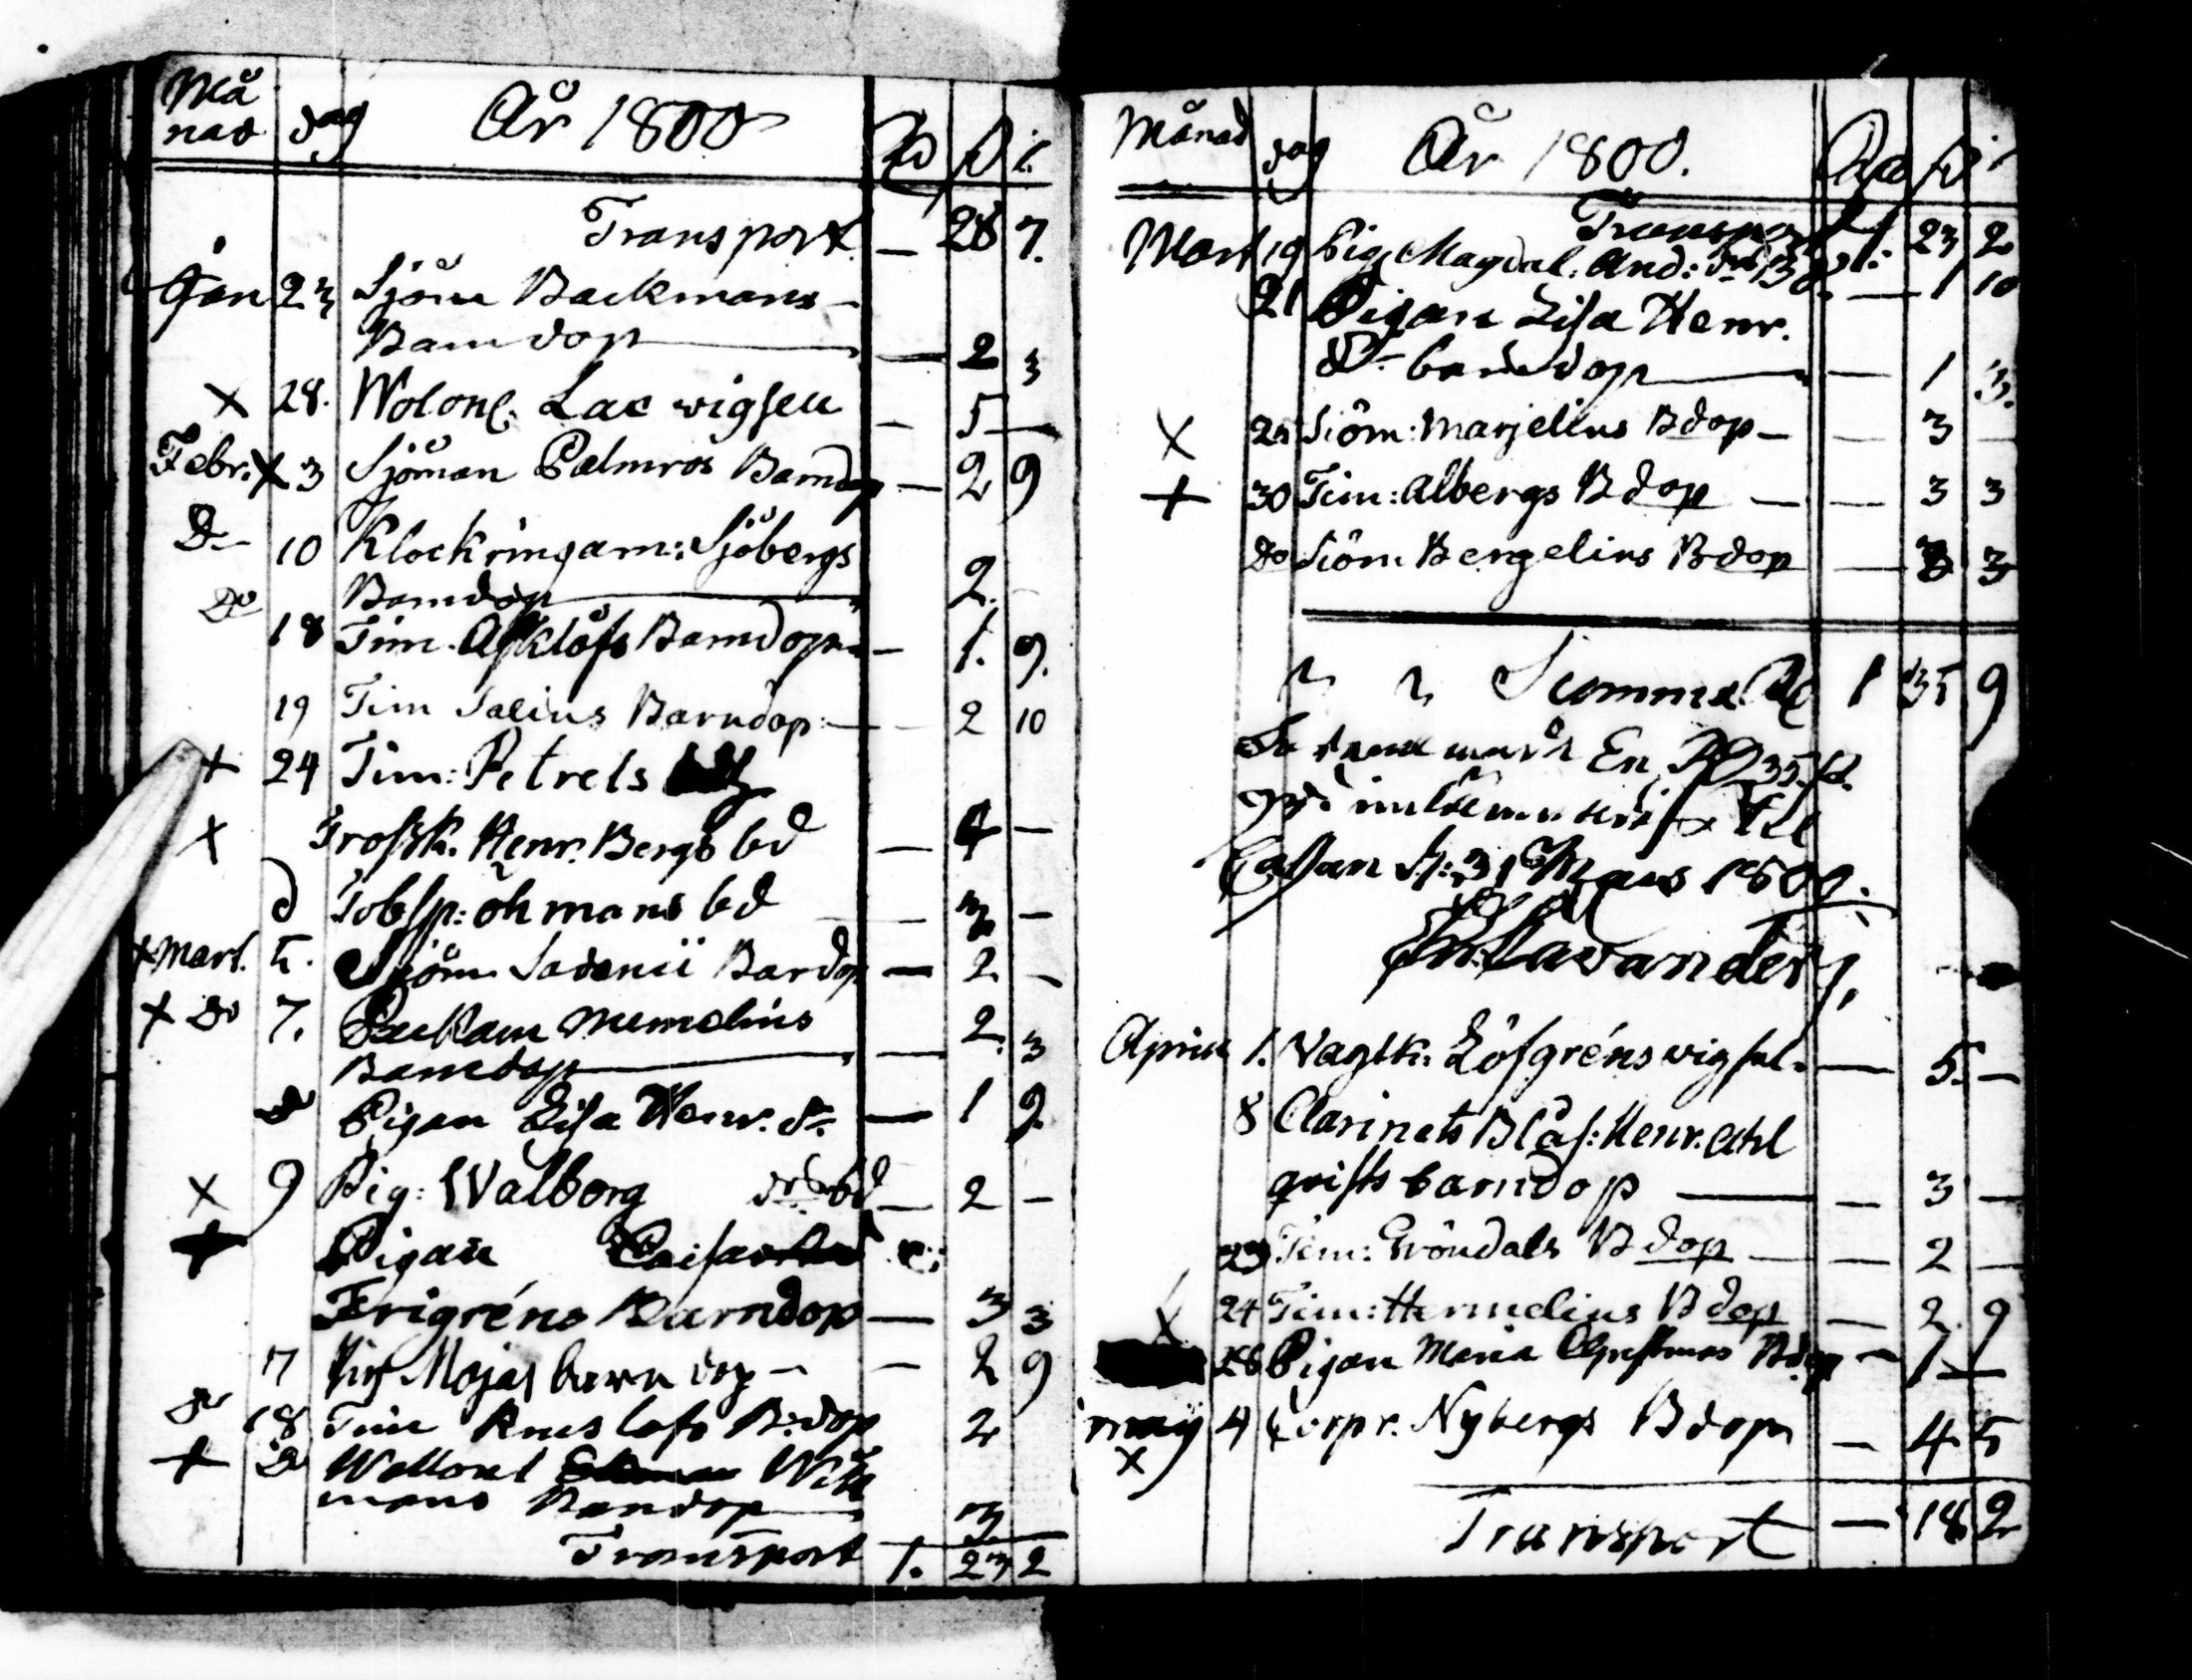 Må
nad dag År 1800 Rd ß r.
Transport – 28 7.
Jan 23 Sjöm Backmans –
Barndop — 2 3
x 28. Wolont: Lac wigsell – 5 —
Febr. x 3 Sjöman Palmros Barndop – 2 9
Do 10 Klockringarn: Sjöbergs
Barndop — 2.
Do 18 Tim. Asklöfs Barndop – 1. 9.
19 Tim Salius Barndop: – 2 10
+ 24 Tim: Petrels
x Trossk. Henr. Bergs bd — 4 —
d Tobsp: öhmans bd – 3 –
x Mart. 5. Sjöm Sadenii Bardop — 2. –
x Do 7. Packarn Memelius
Barndop — 2. 3
do Pigan Lisa Henr. dr. — 1 9
x 9 Pig: Walborg bd – 2 –
+ Pigan Caisa
Frigréns Barndop — 3 3
17 Majas barndop – – 2 9
do 18 Tim löfs B:dop 2
+ Do
mans Barndop 3
Transport 1. 23 2
Månad dag År 1800. Rd ß r
Transport 1. 23 2
Mart 19 Pig Magdal. And: dr Bd. — 1 10
21 Pigan Lisa Henr.
dr barndop — 1 3.
x Siöm: Marjelius Bdop – – 3 –
+ 30 Tim: Albergs Bdop — – 3 3
Do Siöm Bergelius Bdop — 3 3
Summa Rd 1 35 9
En Rd 35 ß.
Cassan d: 31 Mars 1800.
Lavander
April 1. Vagtk: Löfgréns wigsel. — 5. —
8 Clarinets Blås: Henr. Ahl
qvists barndop — – 3 –
23 Tim: Gröndals Bdop — – 2 –
x 24 Tim: Hermelius Bdop — 2. 9
26 Pigan Maria Bdop – 1 –
may 4 Corpr. Nybergs Bdop – 4 5
x
Transport — 18 2